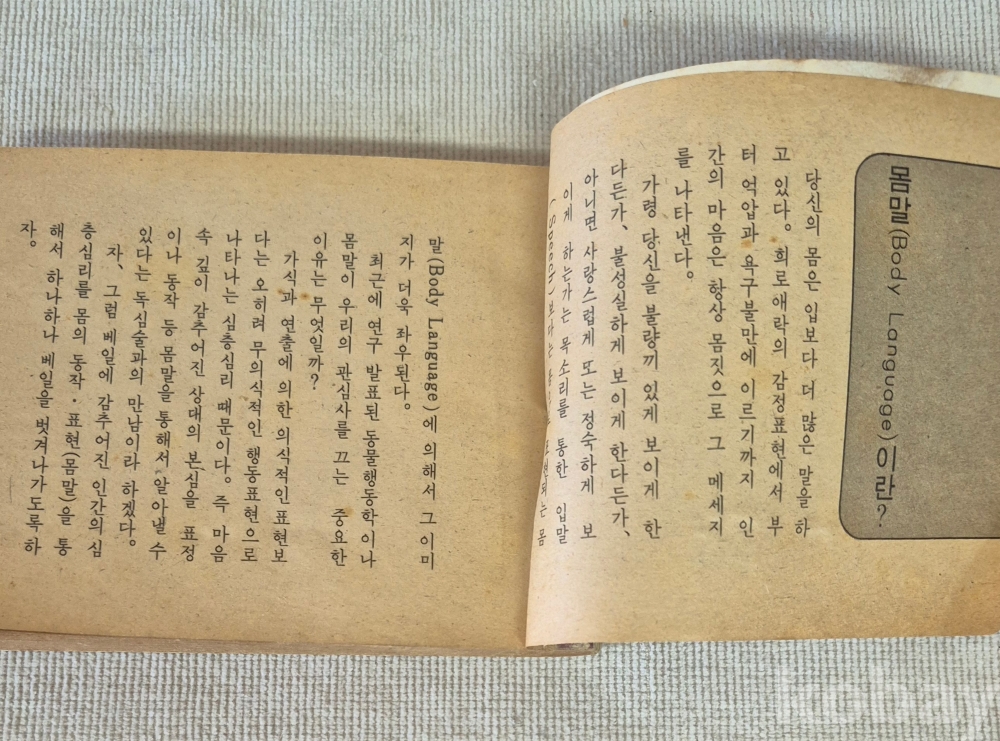 몸말(Body Language)이란?
당신의 몸은 입보다 더 많은 말을 하
고 있다. 희로애락의 감정표현에서 부
터 억압과 욕구불만에 이르기까지 인
간의 마음은 항상 몸짓으로 그 메세지
를 나타낸다.
가령 당신을 불량끼 있게 보이게 한
다든가, 불성실하게 보이게 한다든가,
아니면 사랑스럽게 또는 정숙하게 보
이게 하는가는 목소리를 통한 입말
(Speech)보다는 표현되는 몸
말(Body Language)에 의해서 그 이미
지가 더욱 좌우된다.
최근에 연구 발표된 동물행동학이나
몸말이 우리의 관심사를 끄는 중요한
이유는 무엇일까?
가식과 연출에 의한 의식적인표현보
다는 오히려 무의식적인 행동표현으로
나타나는 심층심리 때문이다. 즉 마음
속 깊이 감추어진 상대의 본심을 표정
이나 동작 등 몸말을 통해서 알아낼 수
있다는 독심술과의 만남이라 하겠다.
자, 그럼 베일에 감추어진 인간의심
층심리를 몸의 동작·표현(몸말)을 통
해서 하나하나 베일을 벗겨나가도록 하
자.
kobay